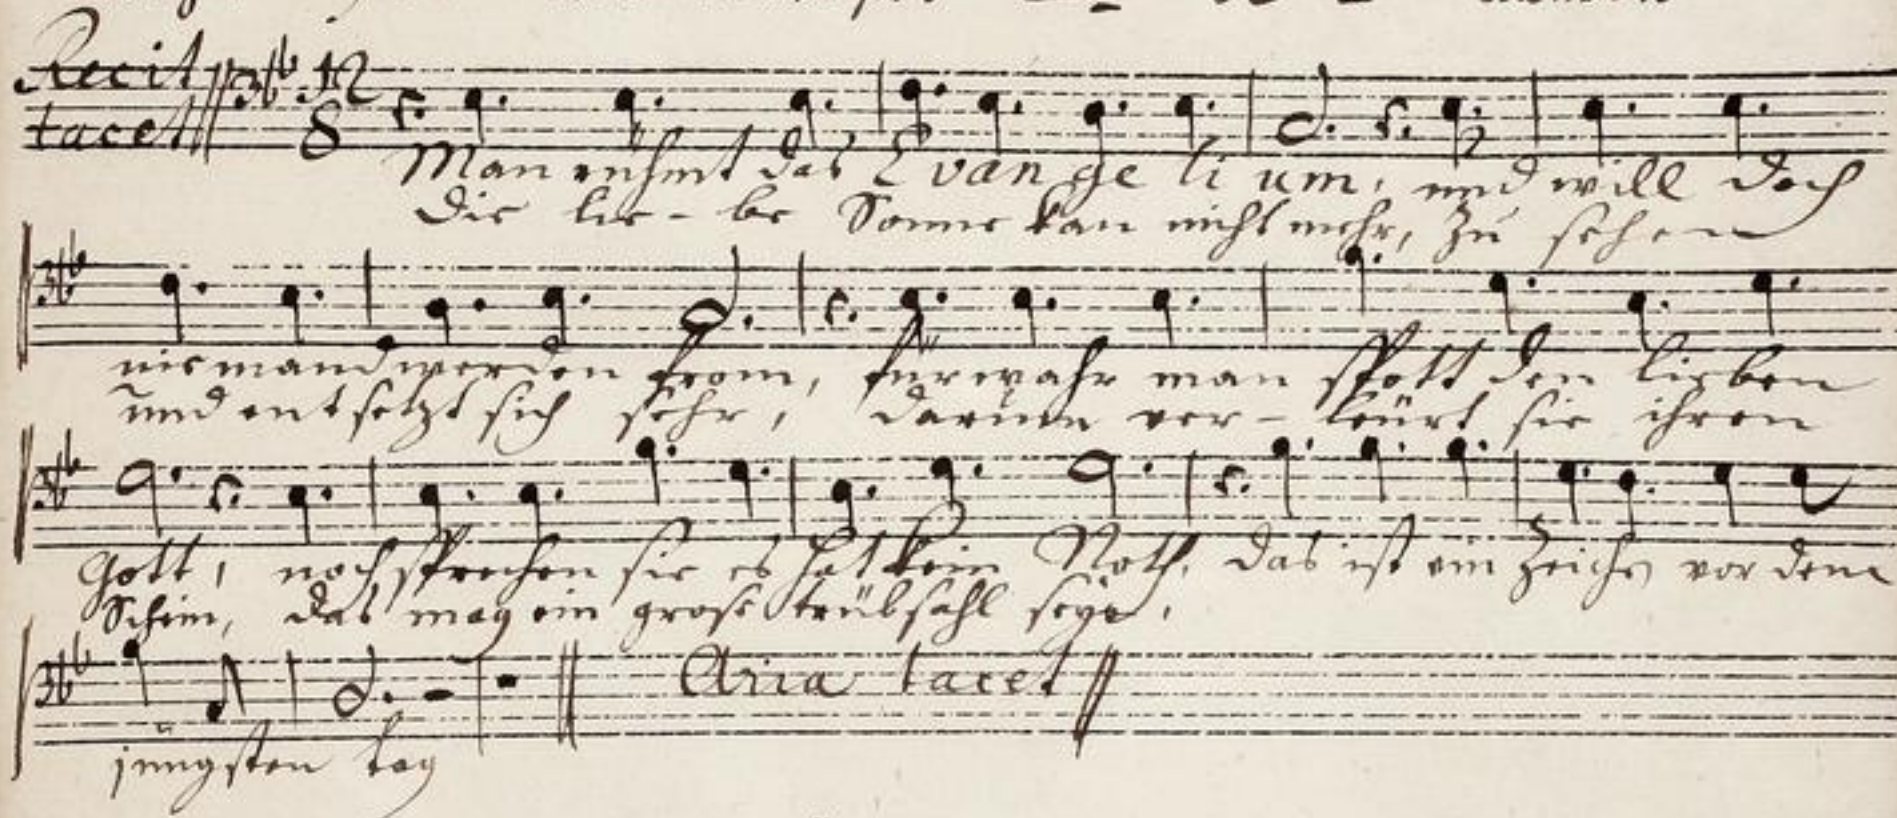 Recit
tacet
12
8
Man rühmt das Evangelium, und will doch
Die lie-be Sonne kan nicht mehr, zu sehen
niemand werden from, fürwahr man spott den lieben
und entsetzt sich sehr, darum ver- leürt sie ihren
Gott, noch sprechen sie es hat kein Noth, das ist ein zeichen vor dem
Schein, das mag ein grose trübsahl seyn,
Aria tacet
jüngsten tag